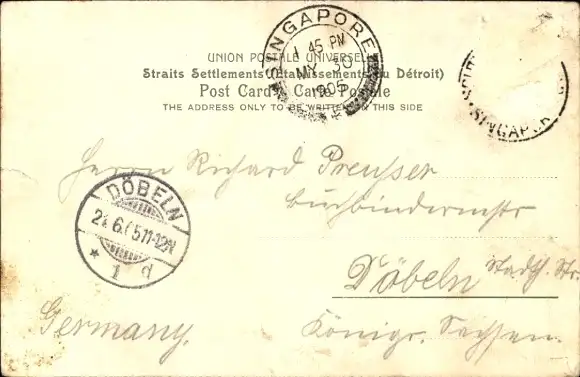 UNION POSTALE UNIVERSELLE
Straits Settlements (Etablissements du Détroit)
Post Card. Carte Postale
THE ADDRESS ONLY TO BE WRITTEN ON THIS SIDE
SINGAPORE
1 45 PM
MY 30
1905
SINGAPOR
Herrn Richard Preusser
Buchbindermstr
Döbeln Stadth. Str.
Königr. Sachsen.
Germany.
DÖBELN
6. 11-12V
* 1 d